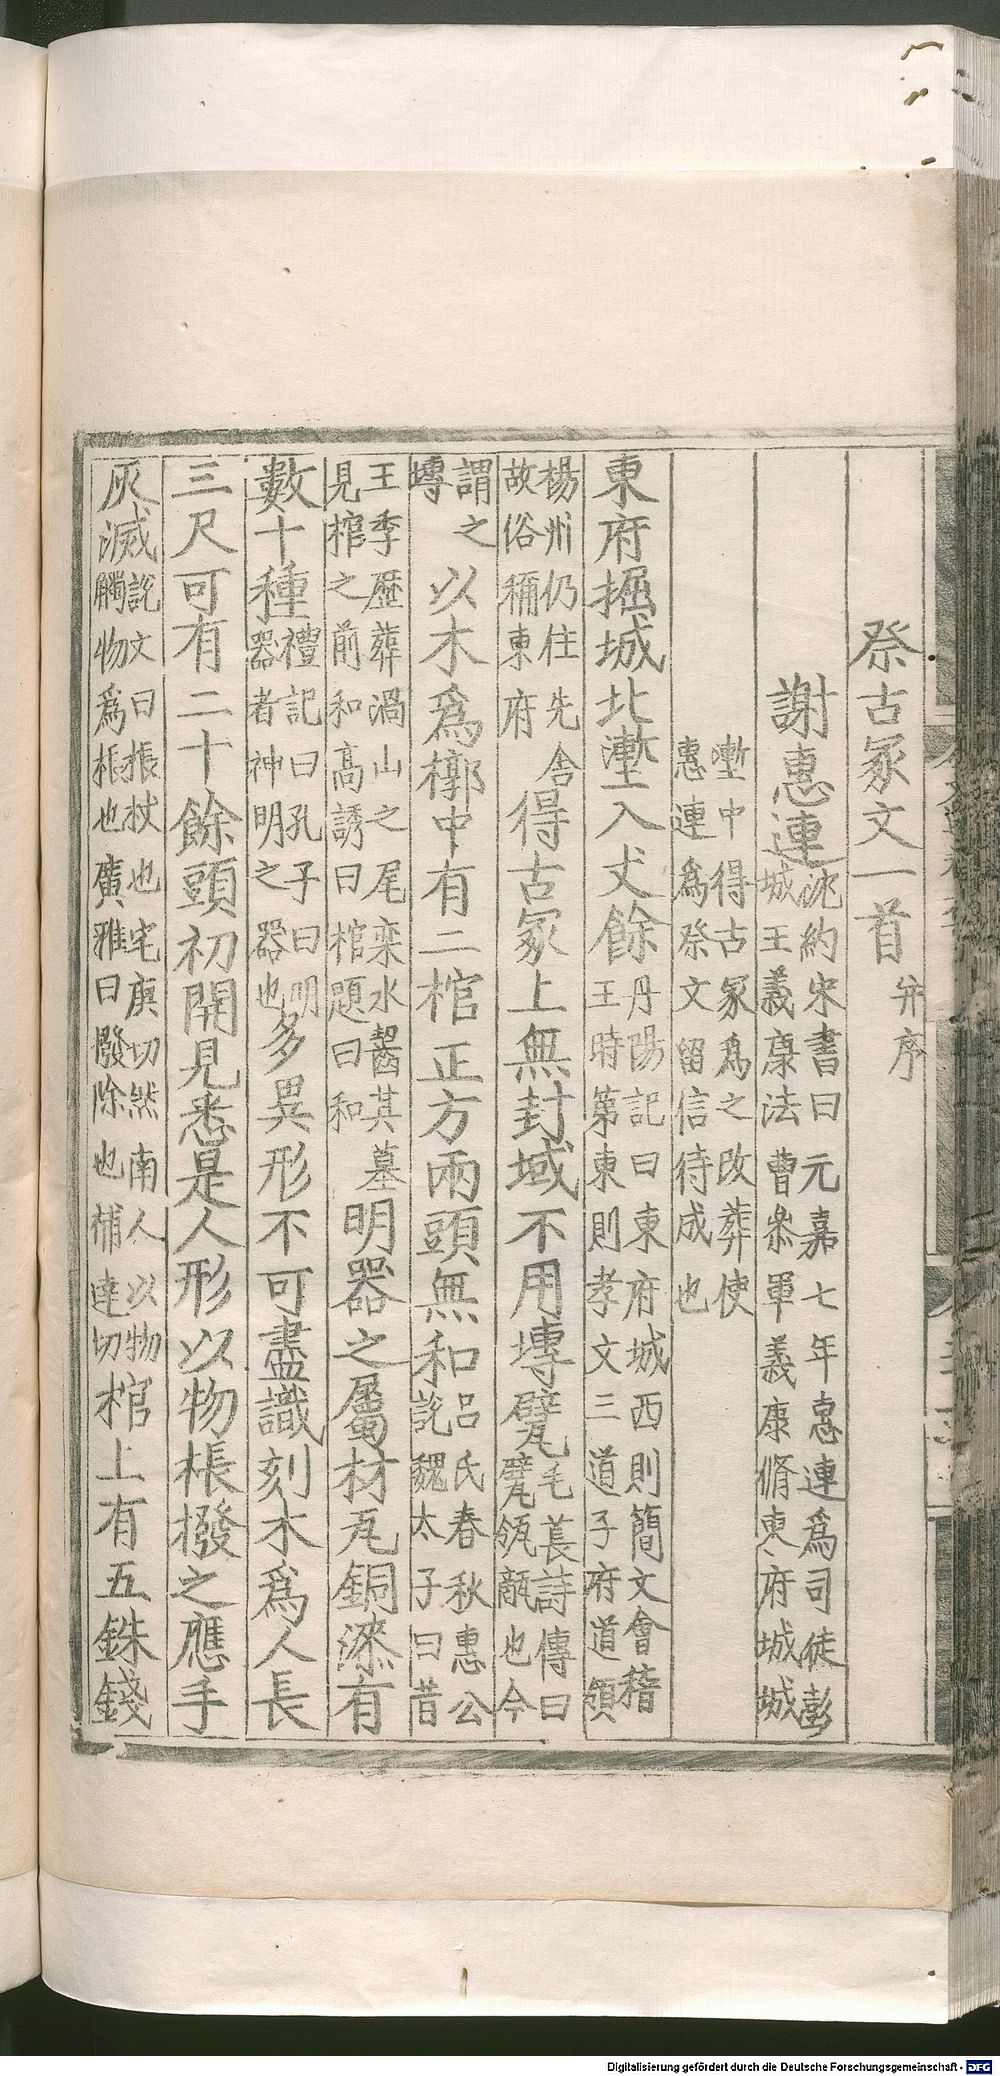 祭古冢文一首并序
謝惠連沈約宋書曰元嘉七年惠連爲司徒彭城王義康法曹叅軍義康脩東府城城
塹中得古冢爲之改葬使惠連爲祭文留信待成也
東府掘城北塹入丈餘丹陽記曰東府城西則簡文會稽王時第東則孝文三道子府道領
楊州仍住先舎故俗稱東府得古冢上無封域不用塼甓毛萇詩傳曰甓瓴甋也今
謂之塼以木爲槨中有二棺正方兩頭無和呂氏春秋惠公說魏太子曰昔
王季歷葬渦山之尾欒水齧其墓見棺之前和高誘曰棺題曰和明器之屬材瓦銅漆有
數十種禮記曰孔子曰明器者神明之器也多異形不可盡識刻木爲人長
三尺可有二十餘頭初開見悉是人形以物棖撥之應手
灰滅說文曰棖杖也宅庚切然南人以物觸物爲棖也廣雅曰撥除也補達切棺上有五銖錢
Digitalisierung gefördert durch die Deutsche Forschungsgemeinschaft - DFG